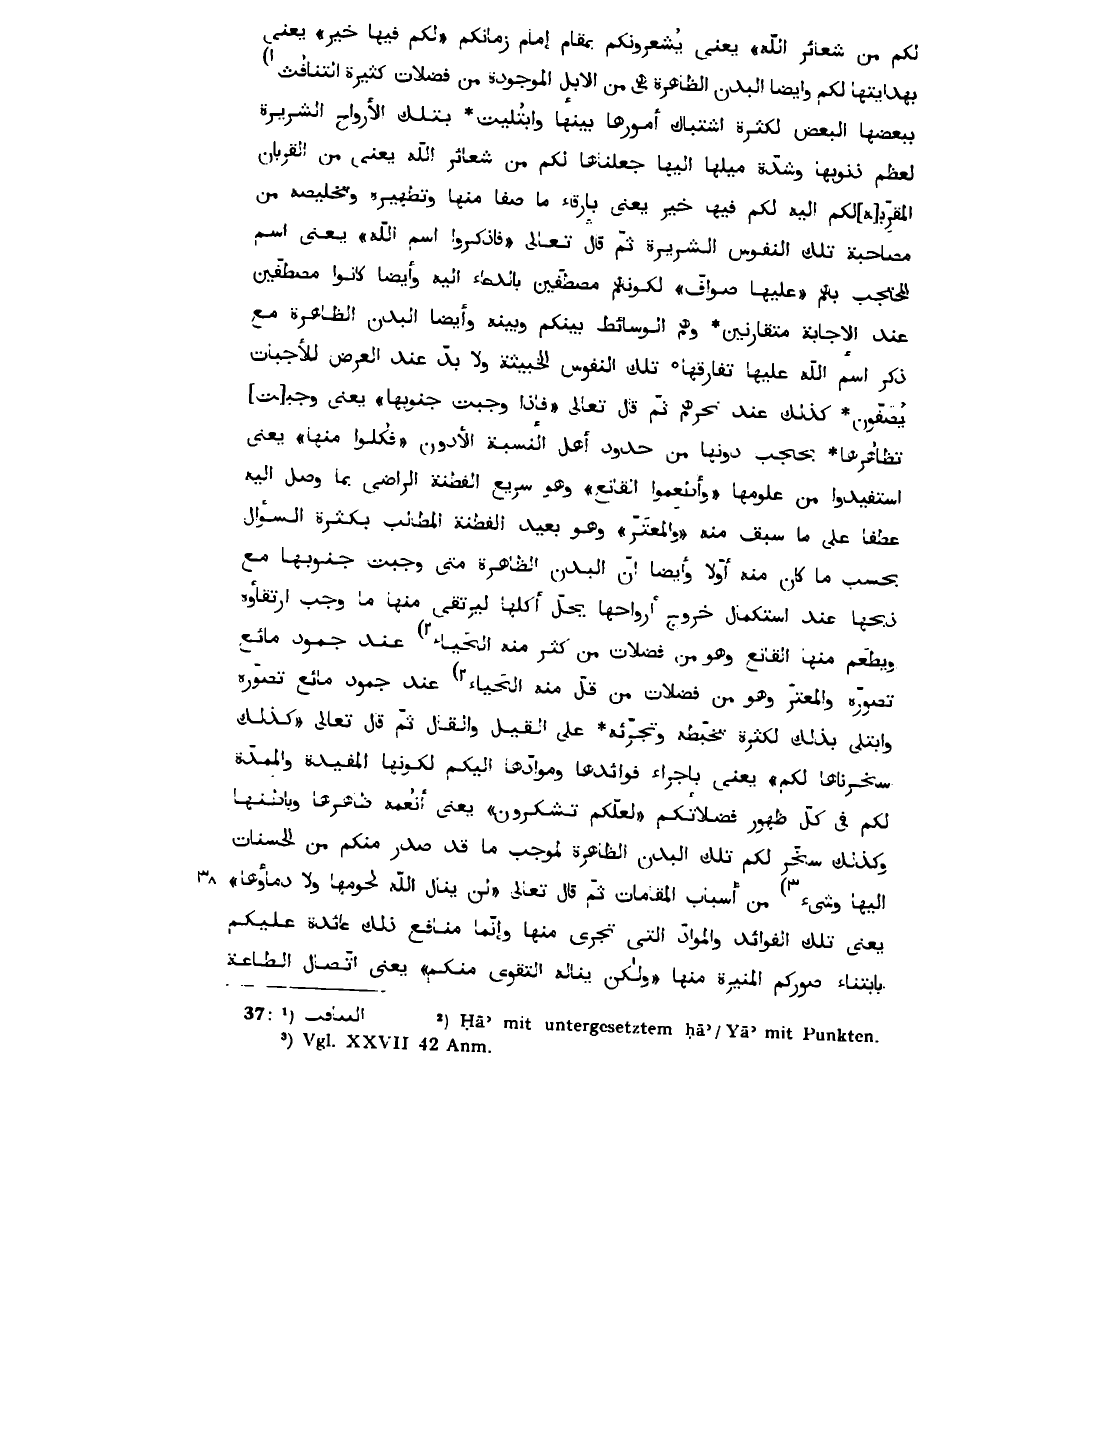 لكم من شعائر اللّه» يعنى يُشعرونكم بمقام إمام زمانكم «لكم فيها خير» يعنى
بهدايتها لكم وايضا البدن الظاهرة هى من الابل الموجودة من فضلات كثيرة ١)
ببعضها البعض لكثرة اشتباك أمورها بينها وابتُليت* بتلك الأرواح الشريرة
لعظم ذنوبها وشدّة ميلها اليها جعلناها لكم من شعائر اللّه يعنى من القربان
المقرّب[ة]لكم اليه لكم فيها خير يعنى بارقاء ما صفا منها وتطهيره وتخليصه من
مصاحبة تلك النفوس الشريرة ثمّ قال تعالى «فاذكروا اسم اللّه» يعنى اسم
المحتجب بهم «عليها صوافّ» لكونهم مصطفّين بالدعاء اليه وأيضا كانوا مصطفّين
عند الاجابة متقارنين* وهم الوسائط بينكم وبينه وأيضا البدن الظاهرة مع
ذكر اسم اللّه عليها تفارقها° تلك النفوس الخبيثة ولا بدّ عند العرض للأجبات
يُصَفّون* كذلك عند نحرهم ثمّ قال تعالى «فاذا وجبت جنوبها» يعنى وجب[ت]
تظاهُرها* بحاجب دونها من حدود أهل النسبة الأدون «فكُلوا منها» يعنى
استفيدوا من علومها «وأطعموا القانع» وهو سريع الفطنة الراضى بما وصل اليه
عطفا على ما سبق منه «والمعتَرّ» وهو بعيد الفطنة المطالب بكثرة السؤال
بحسب ما كان منه أوّلا وأيضا انّ البدن الظاهرة متى وجبت جنوبها مع
ذبحها عند استكمال خروج أرواحها يحلّ أكلها ليرتقى منها ما وجب ارتقاؤه
ويطعَم منها القانع وهو من فضلات من كثر منه الحَياء ٢) عند جمود مائع
تصوّره والمعترّ وهو من فضلات من قلّ منه الحَياء ٢) عند جمود مائع تصوّره
وابتلى بذلك لكثرة تخبّطه وتجرّئه* على القيل والقال ثمّ قال تعالى «كذلك
سخرناها لكم» يعنى باجراء فوائدها وموادّها اليكم لكونها المفيدة والممدّة
لكم فى كلّ ظهور فضلاتكم «لعلّكم تشكرون» يعنى أنْعُمه ظاهرها وباطنها
وكذلك سخّر لكم تلك البدن الظاهرة لموجب ما قد صدر منكم من الحسنات
اليها وشىء ٣) من أسباب المقامات ثمّ قال تعالى «لن ينال اللّه لحومها ولا دماؤها» ٣٨
يعنى تلك الفوائد والموادّ التى تجرى منها وإنّما منافع ذلك عائدة عليكم
بابتناء صوركم المنيرة منها «ولكن يناله التقوى منكم» يعنى اتّصال الطاعة
37: ¹) ²) Ḥāʾ mit untergesetztem ḥāʾ / Yāʾ mit Punkten.
³) Vgl. XXVII 42 Anm.